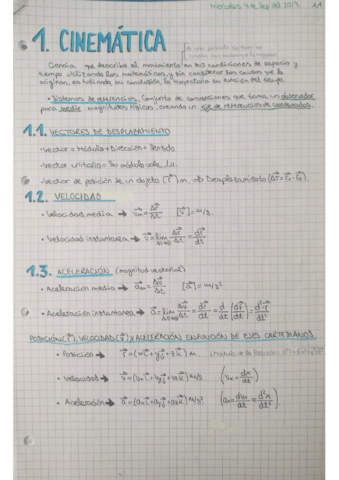 Miercoles 4 de Sep del 2019. 1.1
1. CINEMÁTICA
Ciencia que describe el movimiento en sus condiciones de espacio y
tiempo utilizando las matemáticas, y sin considerar las causas que lo
originan, es
del tiempo.
• Sistemas de referencias, Conjunto de convenciones que toma un observador
para medir magnitudes físicas, creando un eje de referencias de coordenadas.
1.1. VECTORES DE DESPLAMIENTO
·Vector = Módulo+Dirección+Sentido
·Vector unitario = Su módulo vale 1u.
·Vector de posición de un objeto (r⃗) m. ⇒ Desplazamiento (Δr⃗ = r⃗f - r⃗0)
1.2. VELOCIDAD
• Velocidad media → v⃗m = Δr⃗/Δt [v⃗] = m/s.
• Velocidad instantanea → v⃗ = lim Δt→0 Δr⃗/Δt = dr⃗/dt
1.3. ACELERACIÓN (magnitud vectorial)
• Aceleración media → a⃗m = Δv⃗/Δt [a⃗] = m/s²
• Aceleración instantanea → a⃗ = lim Δt→0 Δv⃗/Δt = dv⃗/dt = d/dt (dr⃗/dt) = d²r⃗/dt²
POSICIÓN (r⃗), VELOCIDAD (v⃗) Y ACELERACION EN FUNCIÓN DE EJES CARTESIANOS
• Posición → r⃗ = (xi⃗ + yj⃗ + zk⃗) m.
• Velocidad → v⃗ = (vx i⃗ + vy j⃗ + vz k⃗) m/s (vx = dx/dt)
• Aceleración → a⃗ = (ax i⃗ + ay j⃗ + az k⃗) m/s² (ax = dvx/dt = d²x/dt²)